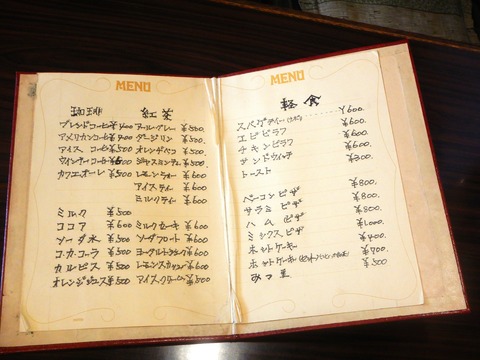 MENU
珈琲 紅茶
ブレンドコーヒー ¥400 アールグレー ¥500.
アメリカンコーヒー ¥400 ダージリン ¥500.
アイス コーヒー ¥500 オレンヂペコ ¥500.
ウインナーコーヒー ¥600 ジャスミンティー ¥500.
カフェオーレ ¥500 レモンティー ¥600.
アイスティー ¥600
ミルクティー ¥600
ミルク ¥500
ココア ¥600 ミルクセーキ ¥600
ソーダ水 ¥500 ソーダフロート ¥600
コカ・コーラ ¥500 ¥600
カルピス ¥500 レモンスカッシュ ¥600
オレンジジュース ¥500 アイスクリーム ¥500
MENU
軽食
スパゲティー ¥600.
エビピラフ ¥600.
チキンピラフ ¥600.
サンドウィッチ ¥600.
トースト ¥300.
ベーコンピザ ¥800.
サラミ ピザ ¥800.
ハム ピザ ¥800.
ミックスピザ ¥1000.
ホットケーキ ¥400.
ホットケーキ ¥700.
みつ豆 ¥500